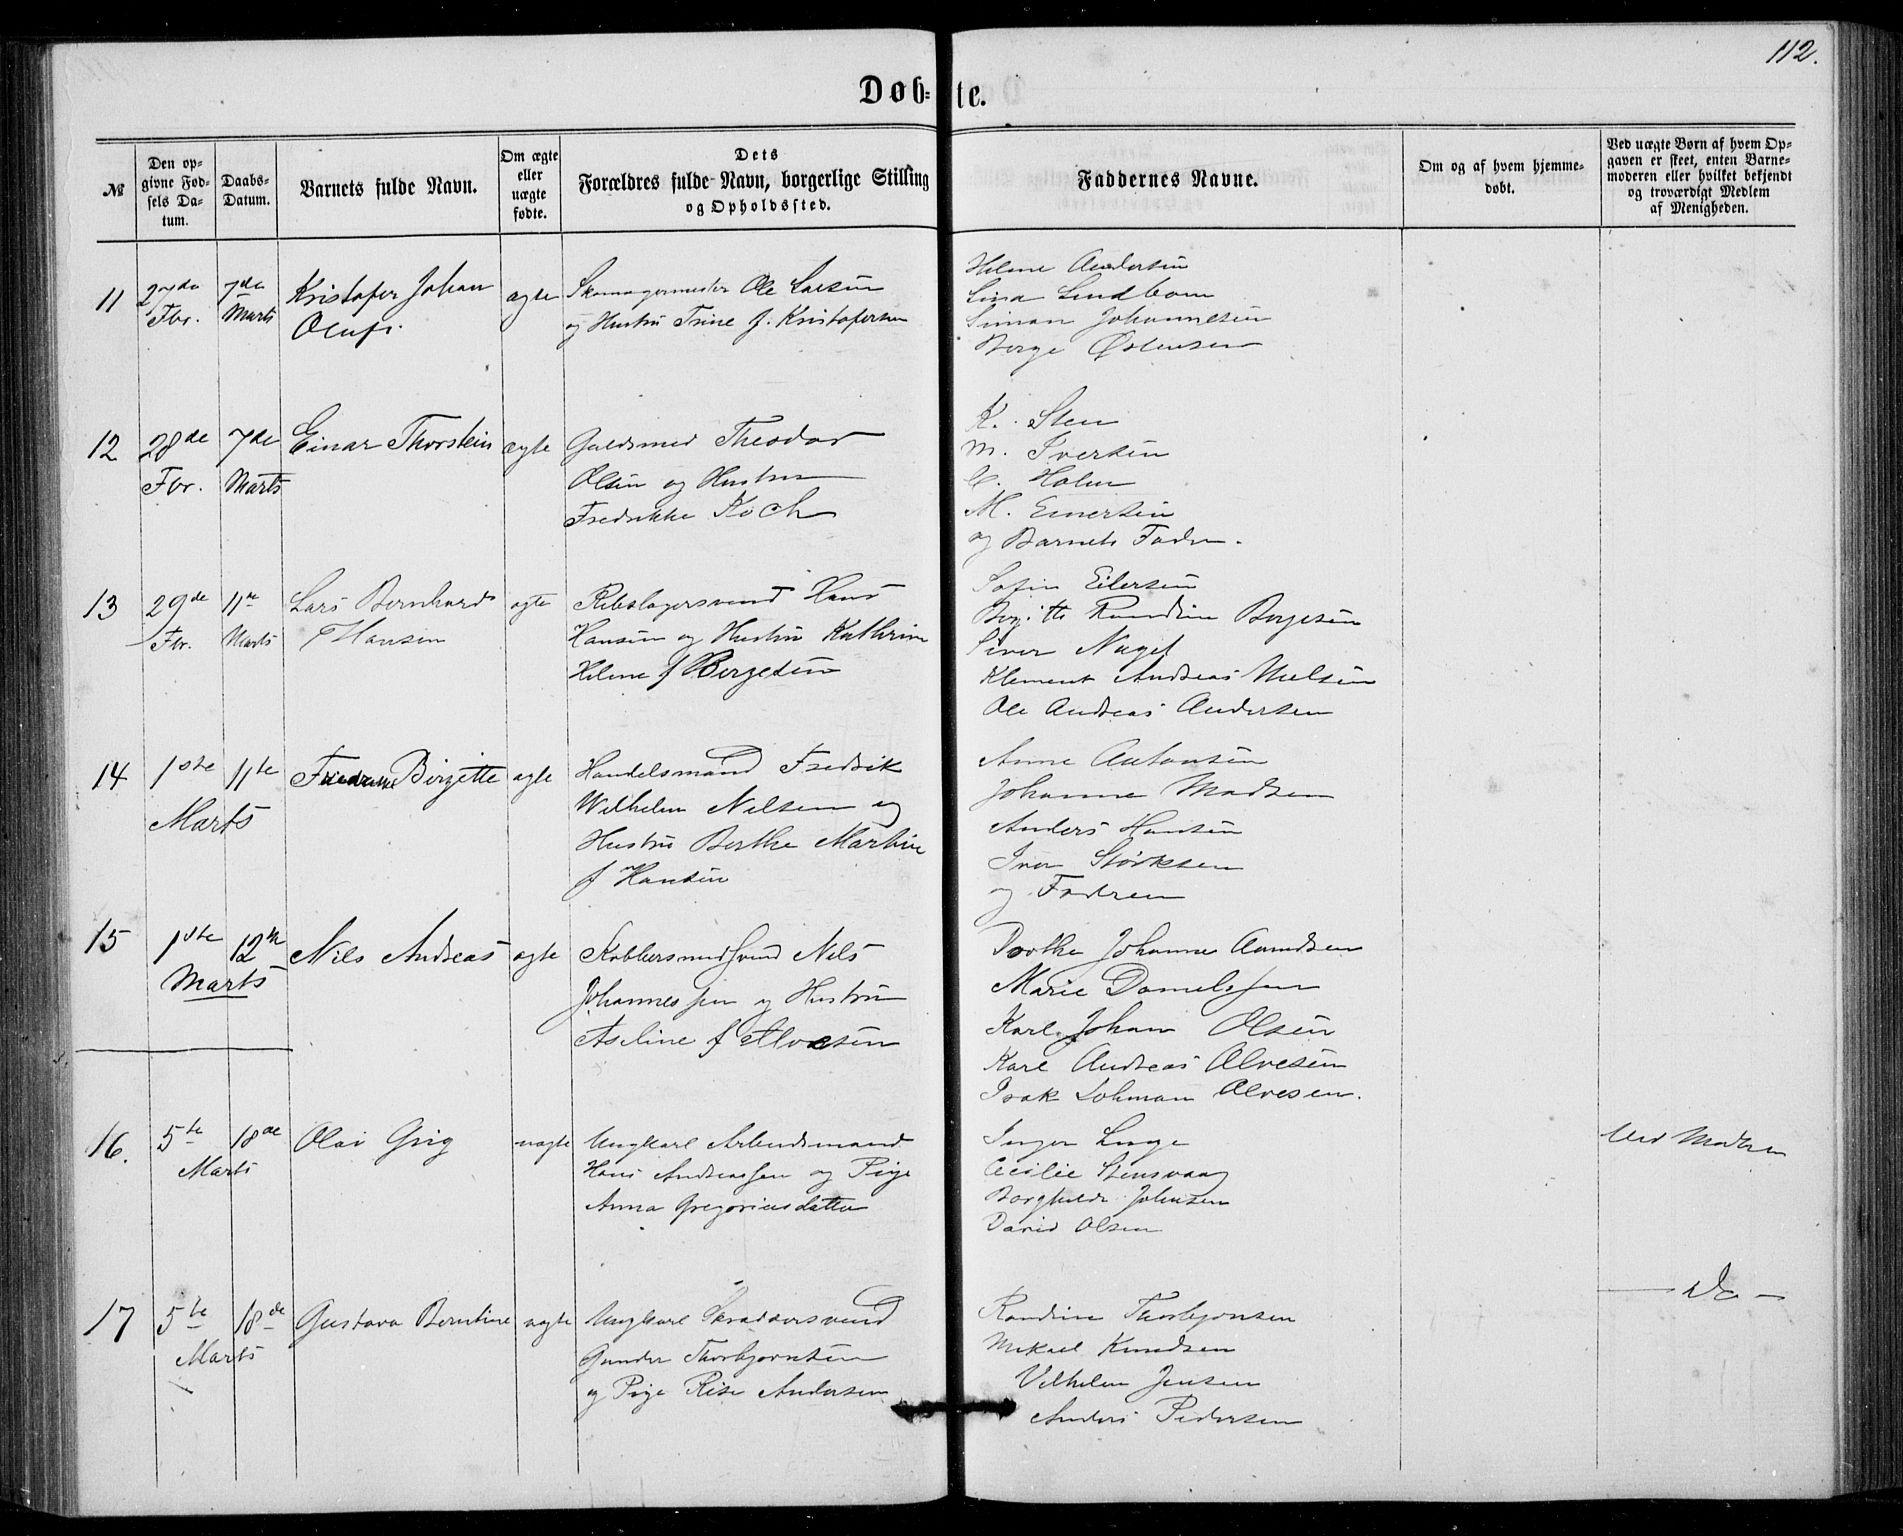 112.
Døb-te.
№
Den opgivne Fødsels Datum.
Daabs-Datum.
Barnets fulde Navn.
Om ægte eller uægte fødte.
Dets Forældres fulde Navn, borgerlige Stilling og Opholdssted.
Faddernes Navne.
Om og af hvem hjemmedøbt.
Ved uægte Børn af hvem Opgaven er skeet, enten Barnemoderen eller hvilket bekjendt og troværdigt Medlem af Menigheden.
11 27de Fbr. 7de Marts
Kristofer Johan
Oluf.
ægte
Skomagermester Ole Larsen
og Hustru Trine f. Kristofersen
Helene Andersen
Lina Lindbom
Simon Johannesen
Berge Østensen
12 28de Fbr. 7de Marts
Einar Thorstein
ægte
Guldsmed Theodor
Olsen og Hustru
Fredrikke Koch
K. Sten
M. Iversen
C. Holm
M. Einersen
og Barnets Fader.
13 29de Fbr. 11te Marts
Lars Bernhard
Hansen
ægte
Rebslagersvend Hans
Hansen og Hustru Kathrine
Helene f Børgesen
Sofie Eilersen
Birgitte Randine Børgesen
Siver Naget
Klement Andreas Nielsen
Ole Andreas Andersen
14 1ste 11te
Marts
Birgitte
ægte
Handelsmand Fredrik
Wilhelm Nilsen og
Hustru Berthe Martine
f Hansen
Anne Antonsen
Johanne Madsen
Anders Hansen
Iver Størksen
og Fadren
15 1ste 12te
Marts
Nils Andreas
ægte
Kobbersmedsvend Nils
Johannessen og Hustru
Aseline f Alvesen
Dorthe Johanne Aamodsen
Marie Danielssen
Karl Johan Olsen
Karl Andreas Alvesen
Isak Lohman Alvesen.
16. 5te 18de
Marts
Olai Grig
uægte
Ungkarl Arbeidsmand
Hans Andreassen og Pige
Anna Gregoriusdatter
Inger Linge
Cecilie Stensvaag
Borghilde Johnsen
David Olsen
Ved Modren
17 5te 18de
Marts
Gustava Berntine
uægte
Ungkarl Skræddersvend
Gunder Thorbjornsen
og Pige Rise Andersen
Randine Thorbjornsen
Mikael Knudsen
Vilhelm Jensen
Anders Pedersen
— Do —